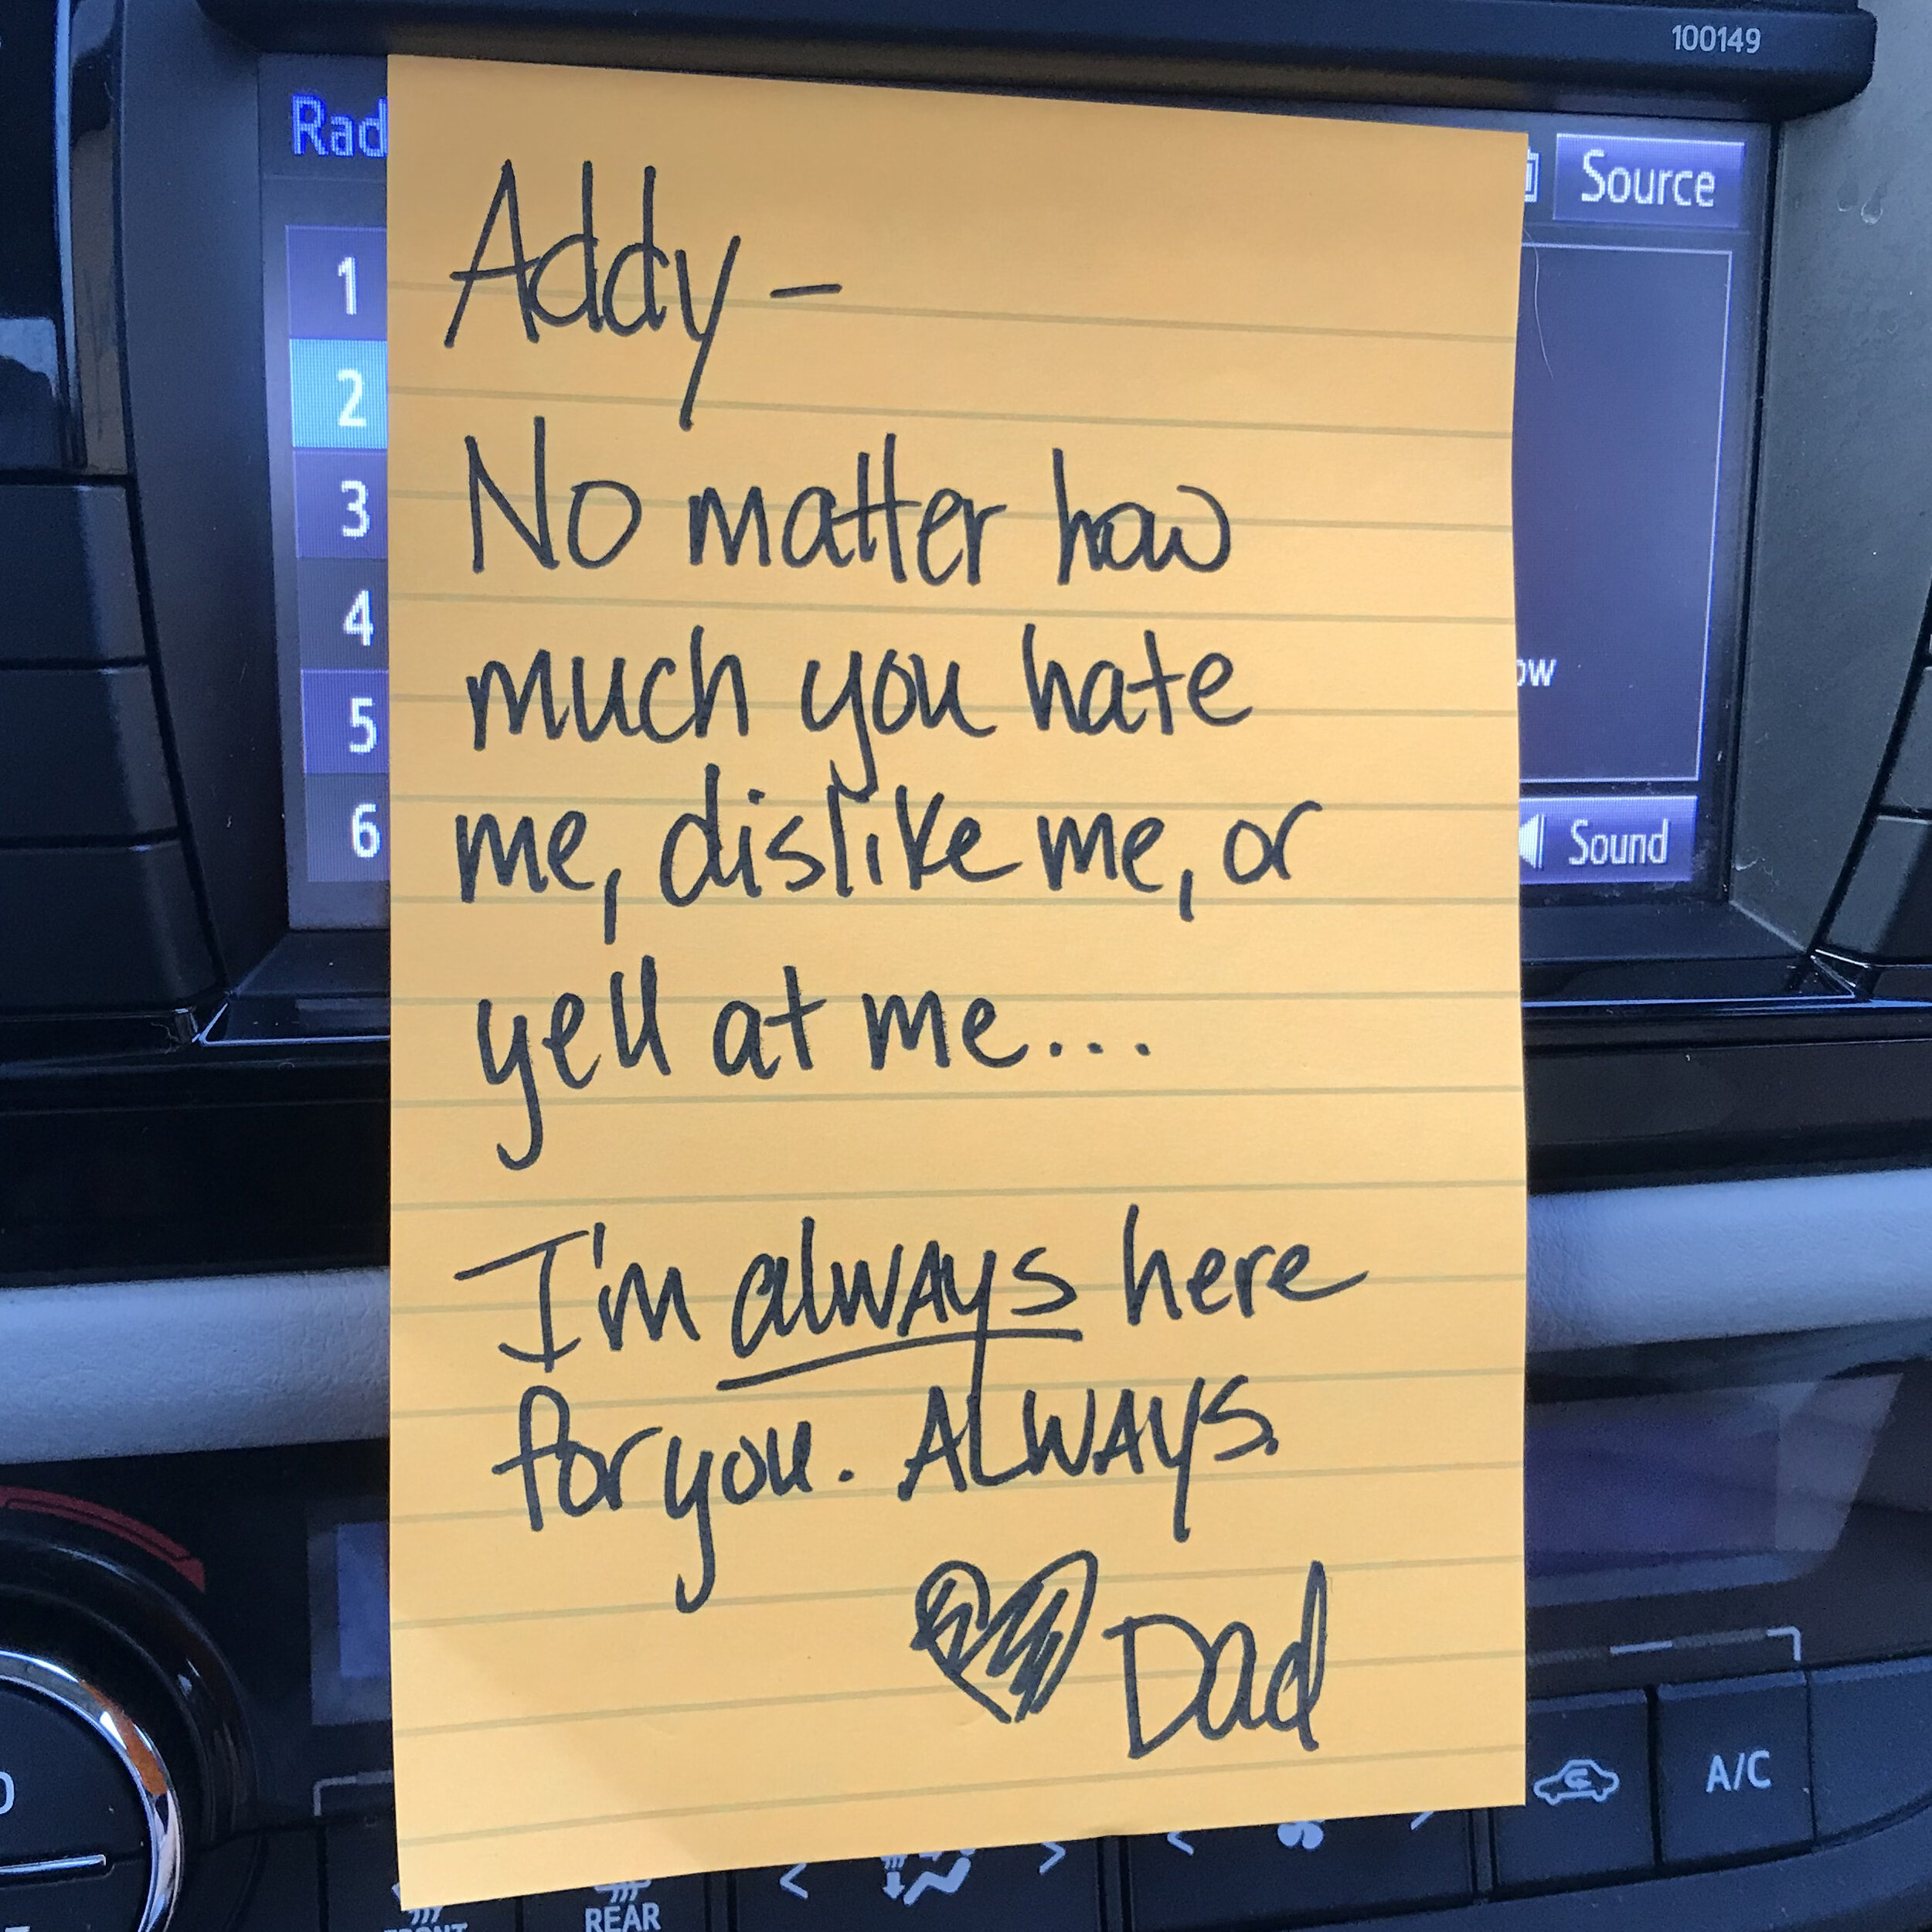 100149
Rad
Source
1
2
3
4
5
6
ow
Sound
Addy -
No matter how
much you hate
me, dislike me, or
yell at me...
I'm always here
for you. ALWAYS.
Dad
A/C
FRONT
REAR